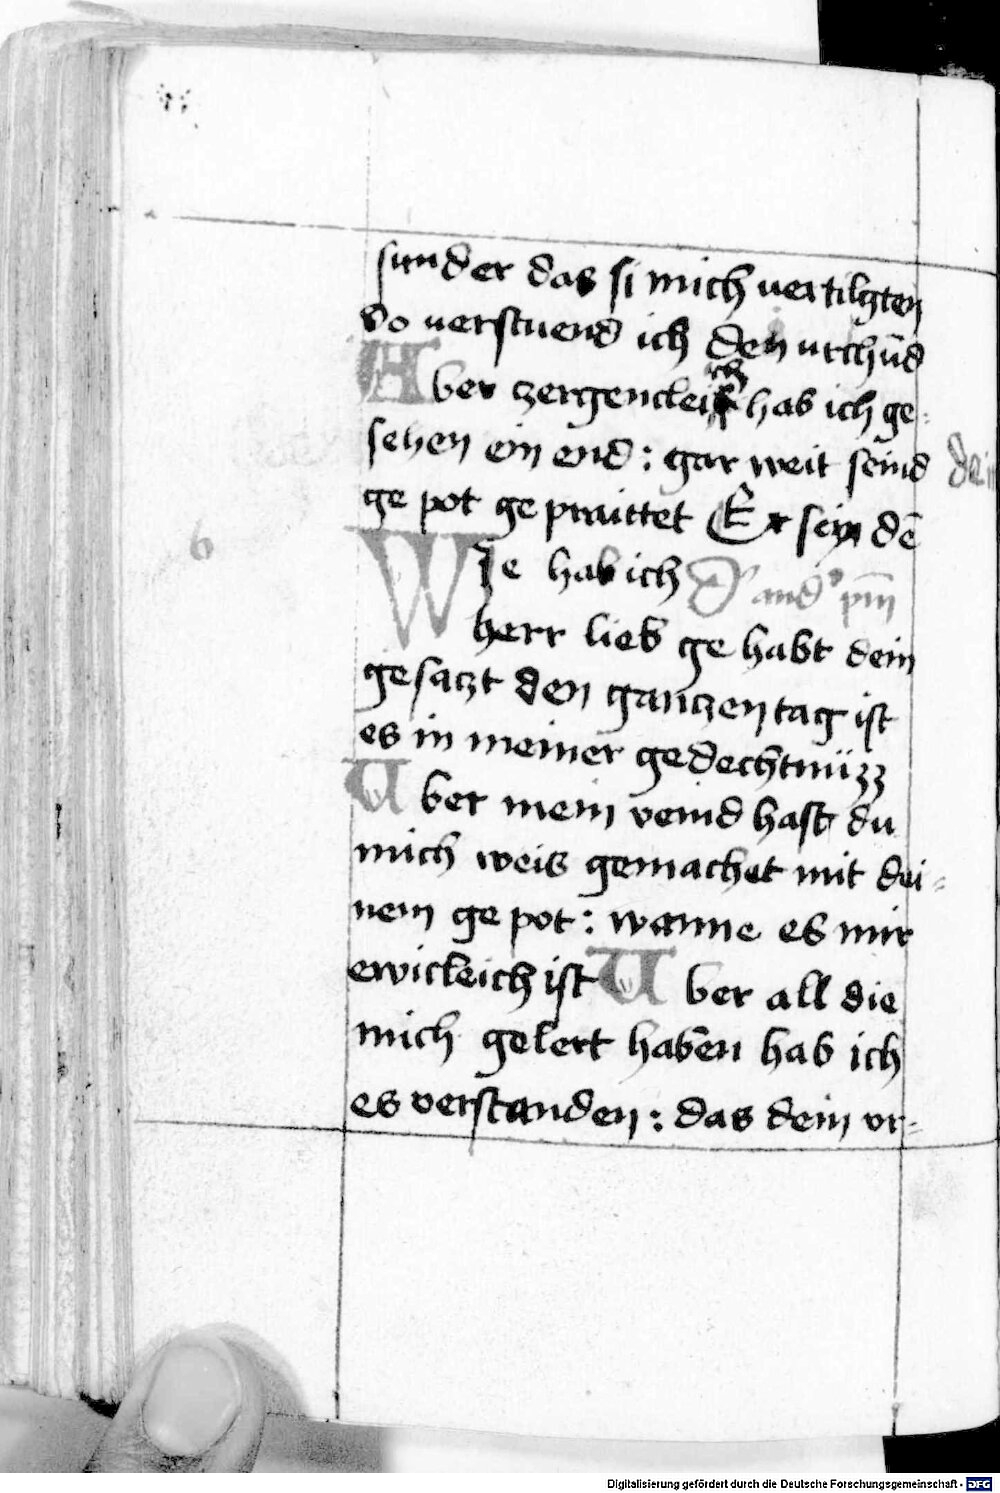 sunder das si mich vertilgten
do verstuend ich den vrchūd
Aber zergencleich hab ich ge-
sehen ein end : gar weit seind dein
ge pot ge praittet Er sein dē
Wie hab ich D' and' pſm
herr lieb ge habt dein
gesaczt den ganczen tag ist
es in meiner gedechtnüzz
Uber mein veind hast du
mich weis gemachet mit dei=
nem ge pot : wanne es mir
ewicleich ist Uber all die
mich gelert haben hab ich
es verstanden : das dein vr=
6
Digitalisierung gefördert durch die Deutsche Forschungsgemeinschaft - DFG